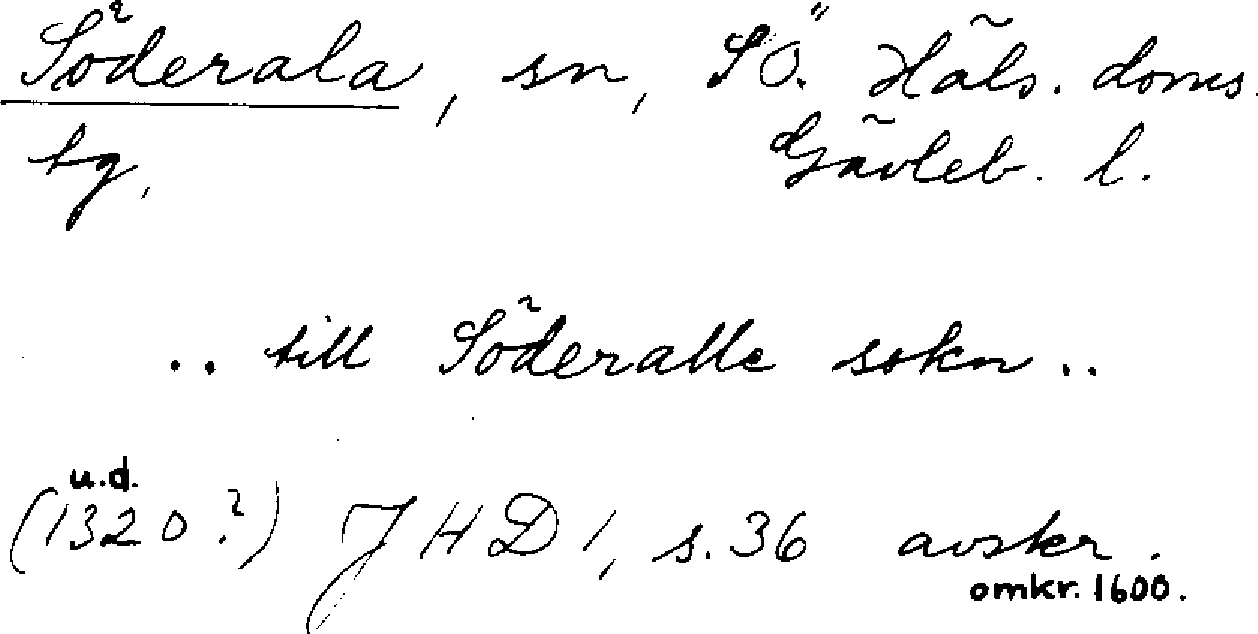 Söderala, sn, SÖ. Häls. doms.
tg, Gävleb. l.
.. till Söderalle sokn ..
u.d.
(1320?) JHD 1, s. 36 avskr.
omkr. 1600.